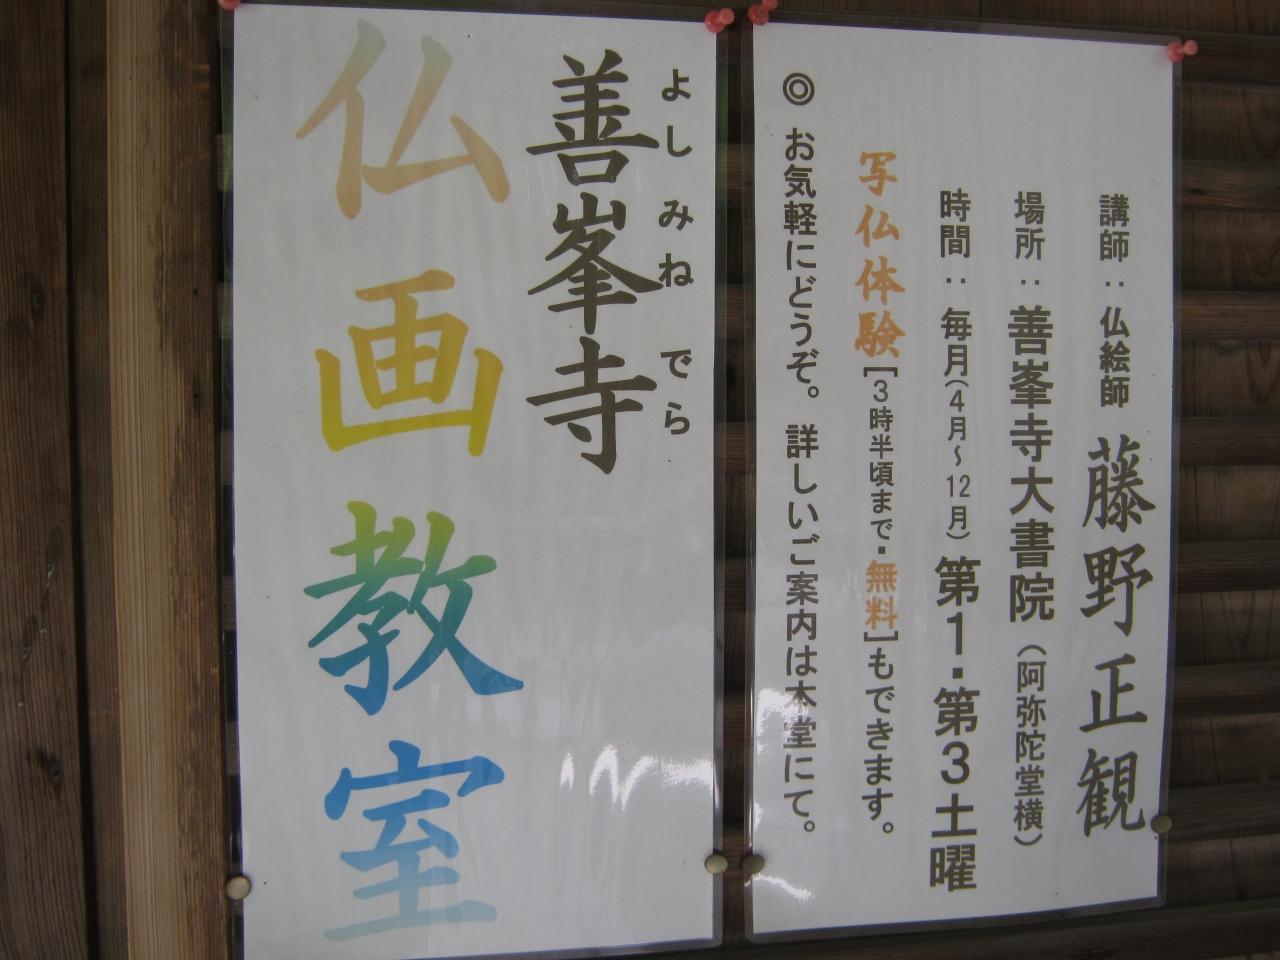 講師：仏絵師 藤野正観
場所：善峯寺大書院（阿弥陀堂横）
時間：毎月（4月～12月）第1・第3土曜
写仏体験［3時半頃まで・無料］もできます。
◎ お気軽にどうぞ。詳しいご案内は本堂にて。
よしみねでら
善峯寺
仏画教室